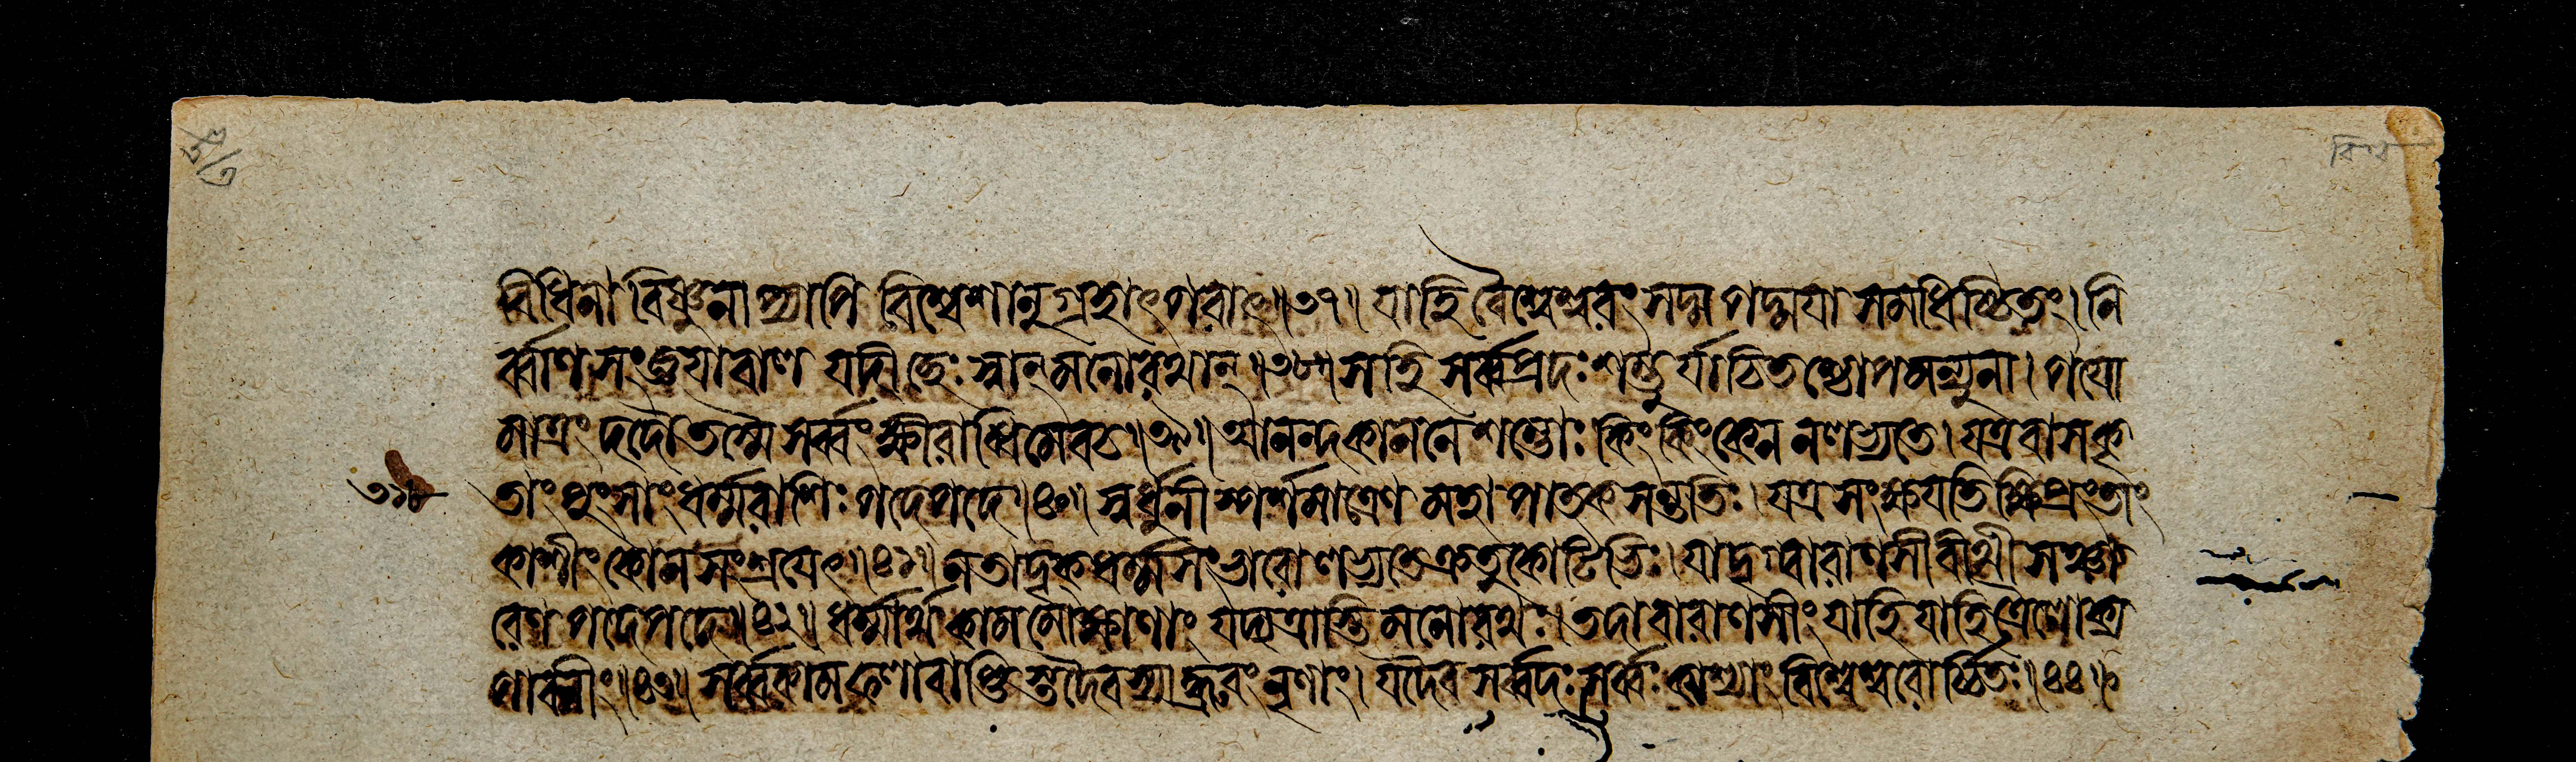 বিধিনা বিষ্ণুনা প্যাপি বিশ্বেশানুগ্রহাৎ পরাৎ॥৩৭॥ যাহি বৈশ্বেশ্বরং সদ্ম পদ্মযা সমধিষ্ঠিতং। নি
র্ব্বাণ যদীচ্ছেঃ স্বান্মনোরথান্॥৩৮॥ সহি সর্ব্বপ্রদঃ শম্ভুর্যাচিতশ্চোপমন্যুনা। পযো
মাত্রং দদৌ তস্মৈ সর্ব্বং ক্ষীরাব্ধিমেবচ॥৩৯॥ আনন্দকাননে শম্ভোঃ কিং কিং কেন ন লভ্যতে। যত্র বাসকৃ
তাং পুংসাং ধর্ম্মরাশিঃ পদেপদে॥৪০॥ স্বর্ধুনীস্পর্শমাত্রেণ মহাপাতকসন্ততিঃ। যত্র সংক্ষযতি ক্ষিপ্রং তাং
কাশীং কোন সংশ্রযেৎ॥৪১॥ ন তাদৃক্ ধর্ম্মসংভারো লভ্যতে ক্রতুকোটিভিঃ। যাদৃগ্বারাণসীবীথীসঞ্চা
রেণ পদেপদে॥৪২॥ ধর্ম্মার্থকামমোক্ষাণাং যদ্যত্রাস্তি মনোরথঃ। তদা বারাণসীং যাহি যাহি ত্রৈলোক্য
পাবনীং॥৪৩॥ সর্ব্বকামফলাবাপ্তিস্তদৈব স্যাদ্ধ্রুবং নৃণাং। যদৈব সর্ব্বদঃ সর্ব্বঃ কাশ্যাং বিশ্বেশ্বরোর্চ্চিতঃ॥৪৪॥